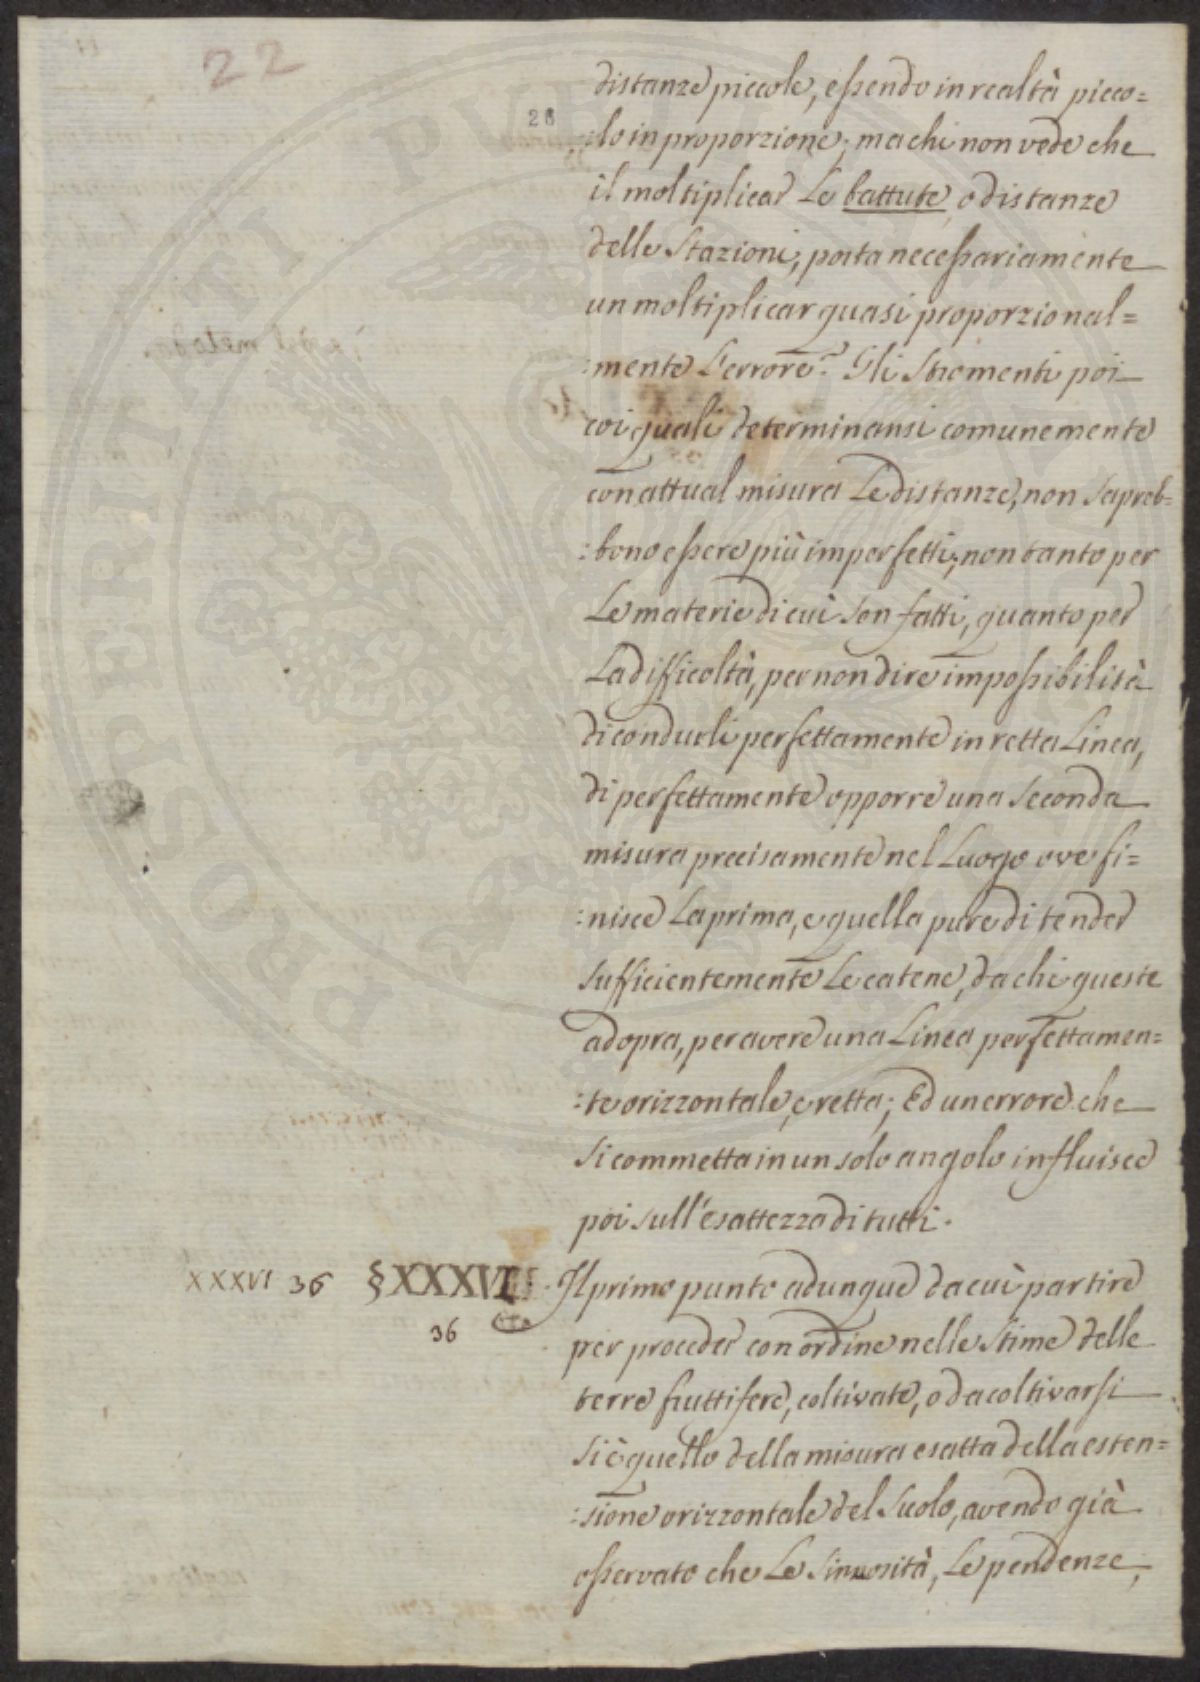 22
28
distanze piccole, essendo in realtà picco=
:lo in proporzione; ma chi non vede che
il moltiplicar le battute, o distanze
delle Stazioni, porta necessariamente
un moltiplicar quasi proporzional=
:mente l'errore? Gli Stromenti poi
coi quali determinansi comunemente
con attual misura le distanze, non sapreb=
:bono essere più imperfetti; non tanto per
le materie di cui son fatti, quanto per
la difficoltà, per non dire impossibilità
di condurli perfettamente in retta Linea,
di perfettamente opporre una seconda
misura precisamente nel Luogo ove fi=
:nisce la prima, e quella pure di tender
sufficientemente le catene, da chi queste
adopra, per avere una Linea perfettamen=
:te orizzontale, e retta; Ed un errore che
si commetta in un solo angolo influisce
poi sull'esattezza di tutti.
XXXVI 36 § XXXVI. Il primo punto adunque da cui partire
36 per proceder con ordine nelle Stime delle
terre fruttifere, coltivate, o da coltivarsi
si è quello della misura esatta della esten=
:sione orizzontale del Suolo, avendo già
osservato che le sinuosità, le pendenze,
PROSPERITATI PVBLICAE